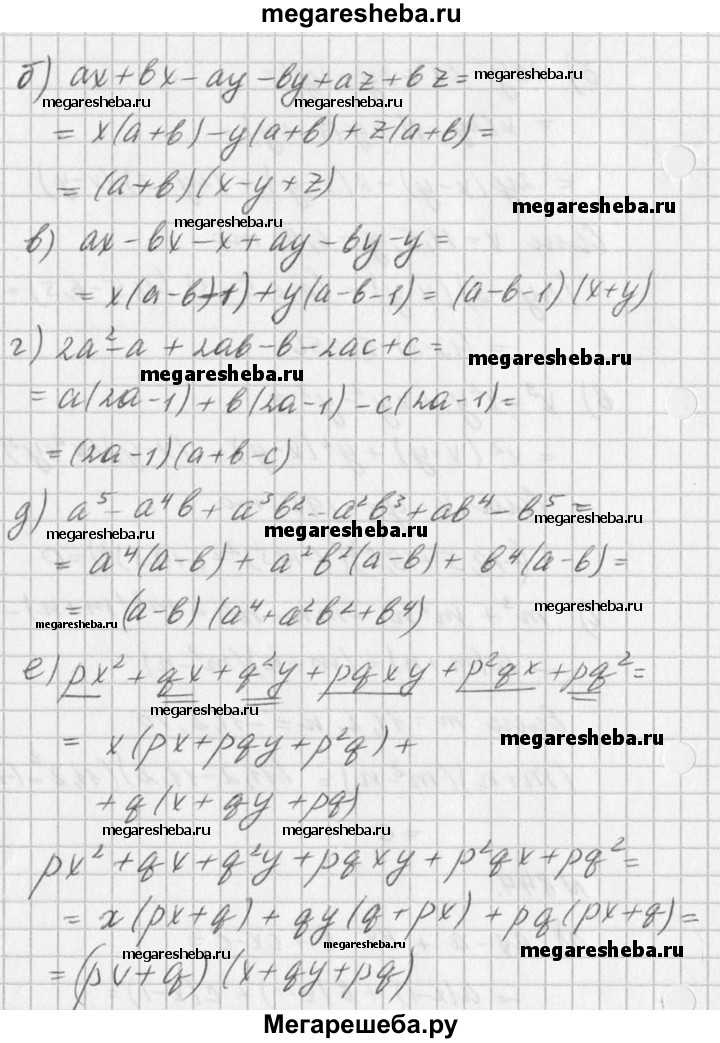 megaresheba.ru
б) ax+bx-ay-by+az+bz= megaresheba.ru
megaresheba.ru megaresheba.ru
= x(a+b)-y(a+b)+z(a+b)=
= (a+b)(x-y+z)
megaresheba.ru
megaresheba.ru
в) ax-bx-x+ay-by-y=
= x(a-b-1)+y(a-b-1)=(a-b-1)(x+y)
г) 2a²-a+2ab-b-2ac+c=
megaresheba.ru megaresheba.ru
= a(2a-1)+b(2a-1)-c(2a-1)=
=(2a-1)(a+b-c)
д) a⁵-a⁴b+a³b²-a²b³+ab⁴-b⁵=
megaresheba.ru megaresheba.ru
= a⁴(a-b)+a²b²(a-b)+b⁴(a-b)=
megaresheba.ru
= (a-b)(a⁴+a²b²+b⁴)
megaresheba.ru
е) px²+qx+q²y+pqxy+p²qx+pq²=
megaresheba.ru
= x(px+pqy+p²q)+
megaresheba.ru
+q(x+qy+pq)
megaresheba.ru megaresheba.ru
px²+qx+q²y+pqxy+p²qx+pq²=
= x(px+q)+qy(q+px)+pq(px+q)=
megaresheba.ru megaresheba.ru megaresheba.ru
=(px+q)(x+qy+pq)
Мегарешеба.ру